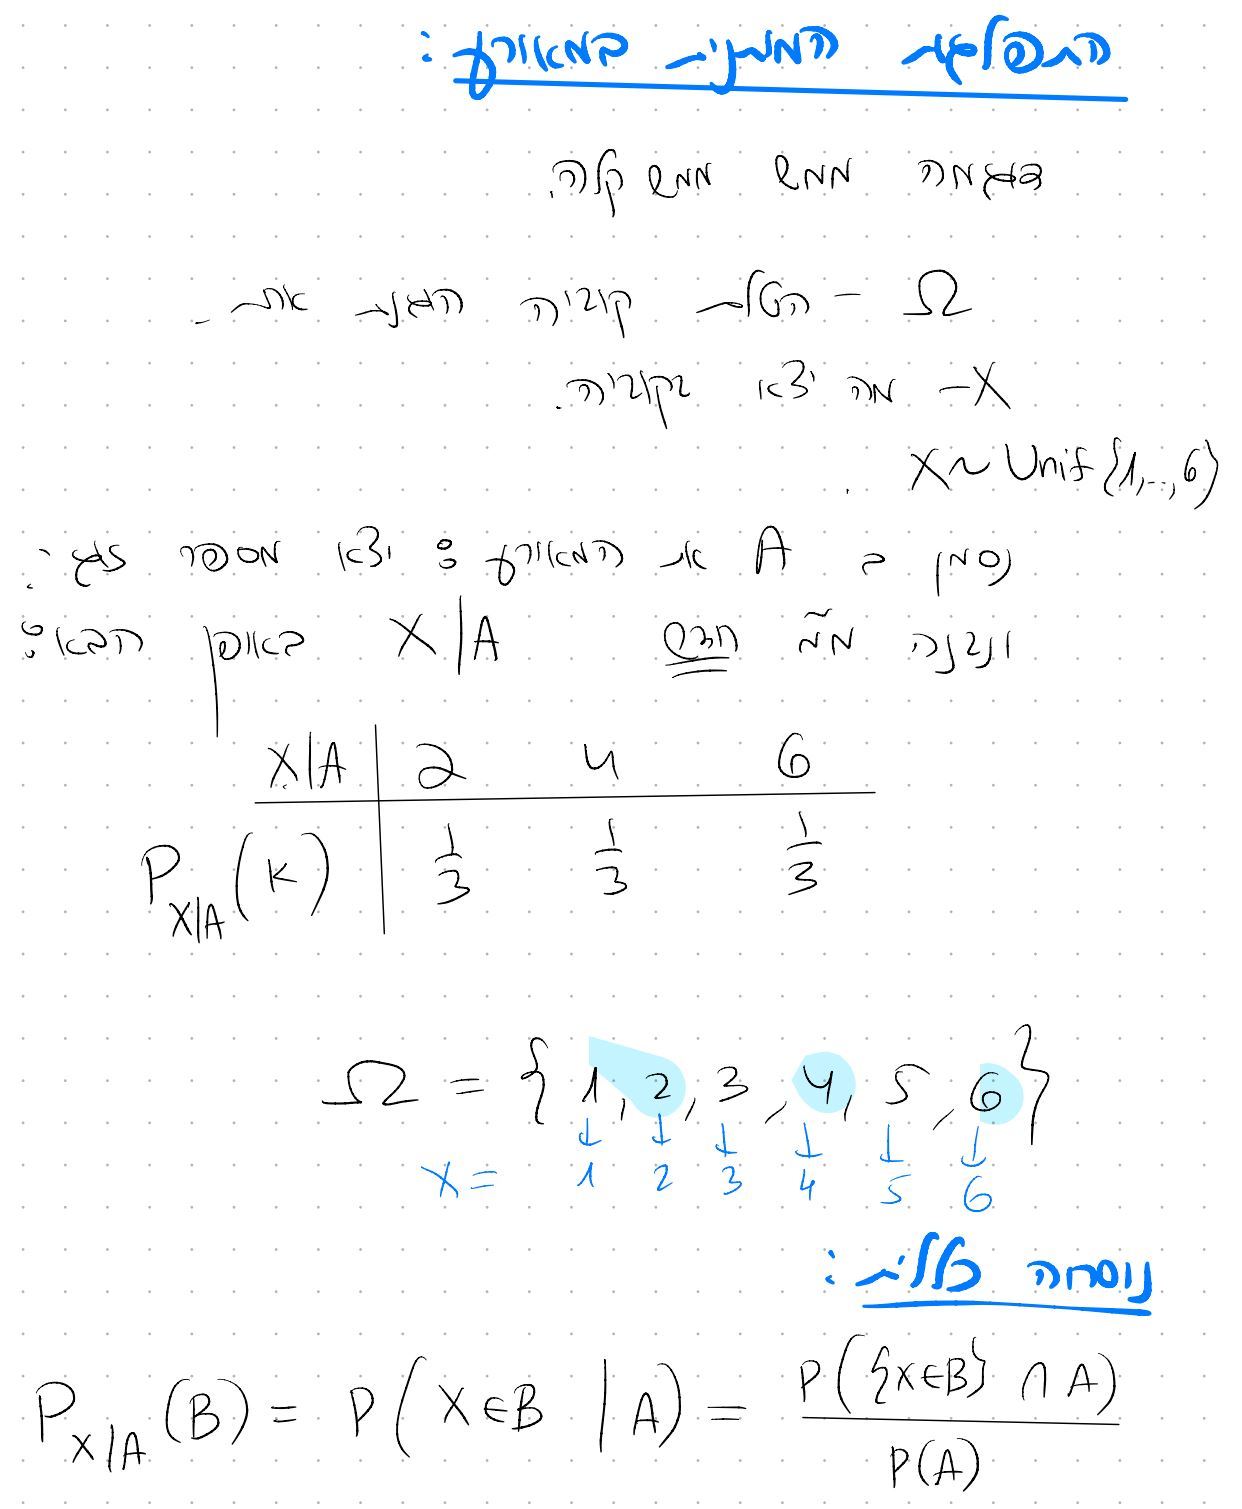 התפלגות המותנית במאורע:
דוגמה ממש ממש קלה.
Ω – הטלת קוביה הוגנת אחת.
X – מה יצא בקוביה.
X ~ Unif {1,..,6}
נסמן ב A את המאורע: יצא מספר זוגי.
ונבנה מ"מ חדש X|A באופן הבא:
X|A 2 4 6
P_{X|A}(K) 1/3 1/3 1/3
Ω = { 1, 2, 3, 4, 5, 6 }
↓ ↓ ↓ ↓ ↓ ↓
X = 1 2 3 4 5 6
נוסחה כללית:
P_{X|A}(B) = P( X∈B | A) = P({X∈B} ∩ A) / P(A)